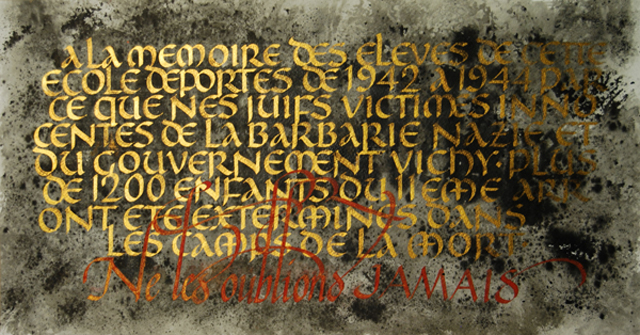 A LA MEMOIRE DES ELEVES DE CETTE
ECOLE DEPORTES DE 1942 A 1944 PAR
CE QUE NES JUIFS VICTIMES INNO
CENTES DE LA BARBARIE NAZIE ET
DU GOUVERNEMENT VICHY. PLUS
DE 1200 ENFANTS DU 11EME ARR
ONT ETE EXTERMINES DANS
LES CAMPS DE LA MORT
Ne les oublions JAMAIS